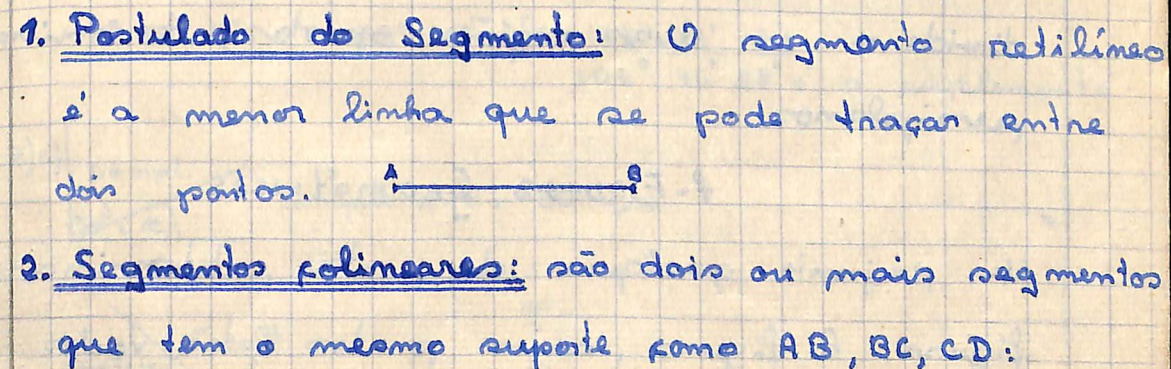 1. Postulado do Segmento: O segmento retilíneo
é a menor linha que se pode traçar entre
dois pontos. A B
2. Segmentos colineares: são dois ou mais segmentos
que tem o mesmo suporte como AB, BC, CD: